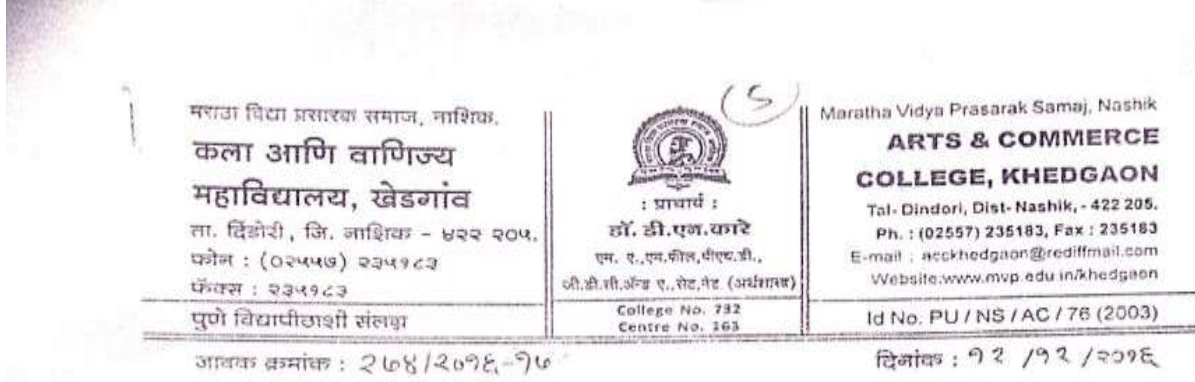 (5)
मराठा विद्या प्रसारक समाज, नाशिक.
कला आणि वाणिज्य
महाविद्यालय, खेडगांव
ता. दिंडोरी, जि. नाशिक - ४२२ २०५.
फोन : (०२५५७) २३५१८३
फॅक्स : २३५१८३
पुणे विद्यापीठाशी संलग्न
: प्राचार्य :
डॉ. डी.एन.कारे
एम. ए.,एम.फील,पीएच.डी.,
जी.डी.सी.अॅन्ड ए.,सेट,नेट (अर्थशास्त्र)
College No. 732
Centre No. 263
Maratha Vidya Prasarak Samaj, Nashik
ARTS & COMMERCE
COLLEGE, KHEDGAON
Tal- Dindori, Dist- Nashik, - 422 205.
Ph. : (02557) 235183, Fax : 235183
E-mail : acckhedgaon@rediffmail.com
Website:www.mvp.edu.in/khedgaon
Id No. PU / NS / AC / 76 (2003)
जावक क्रमांक : २७४/२०१६-१७
दिनांक : १२ /१२ /२०१६